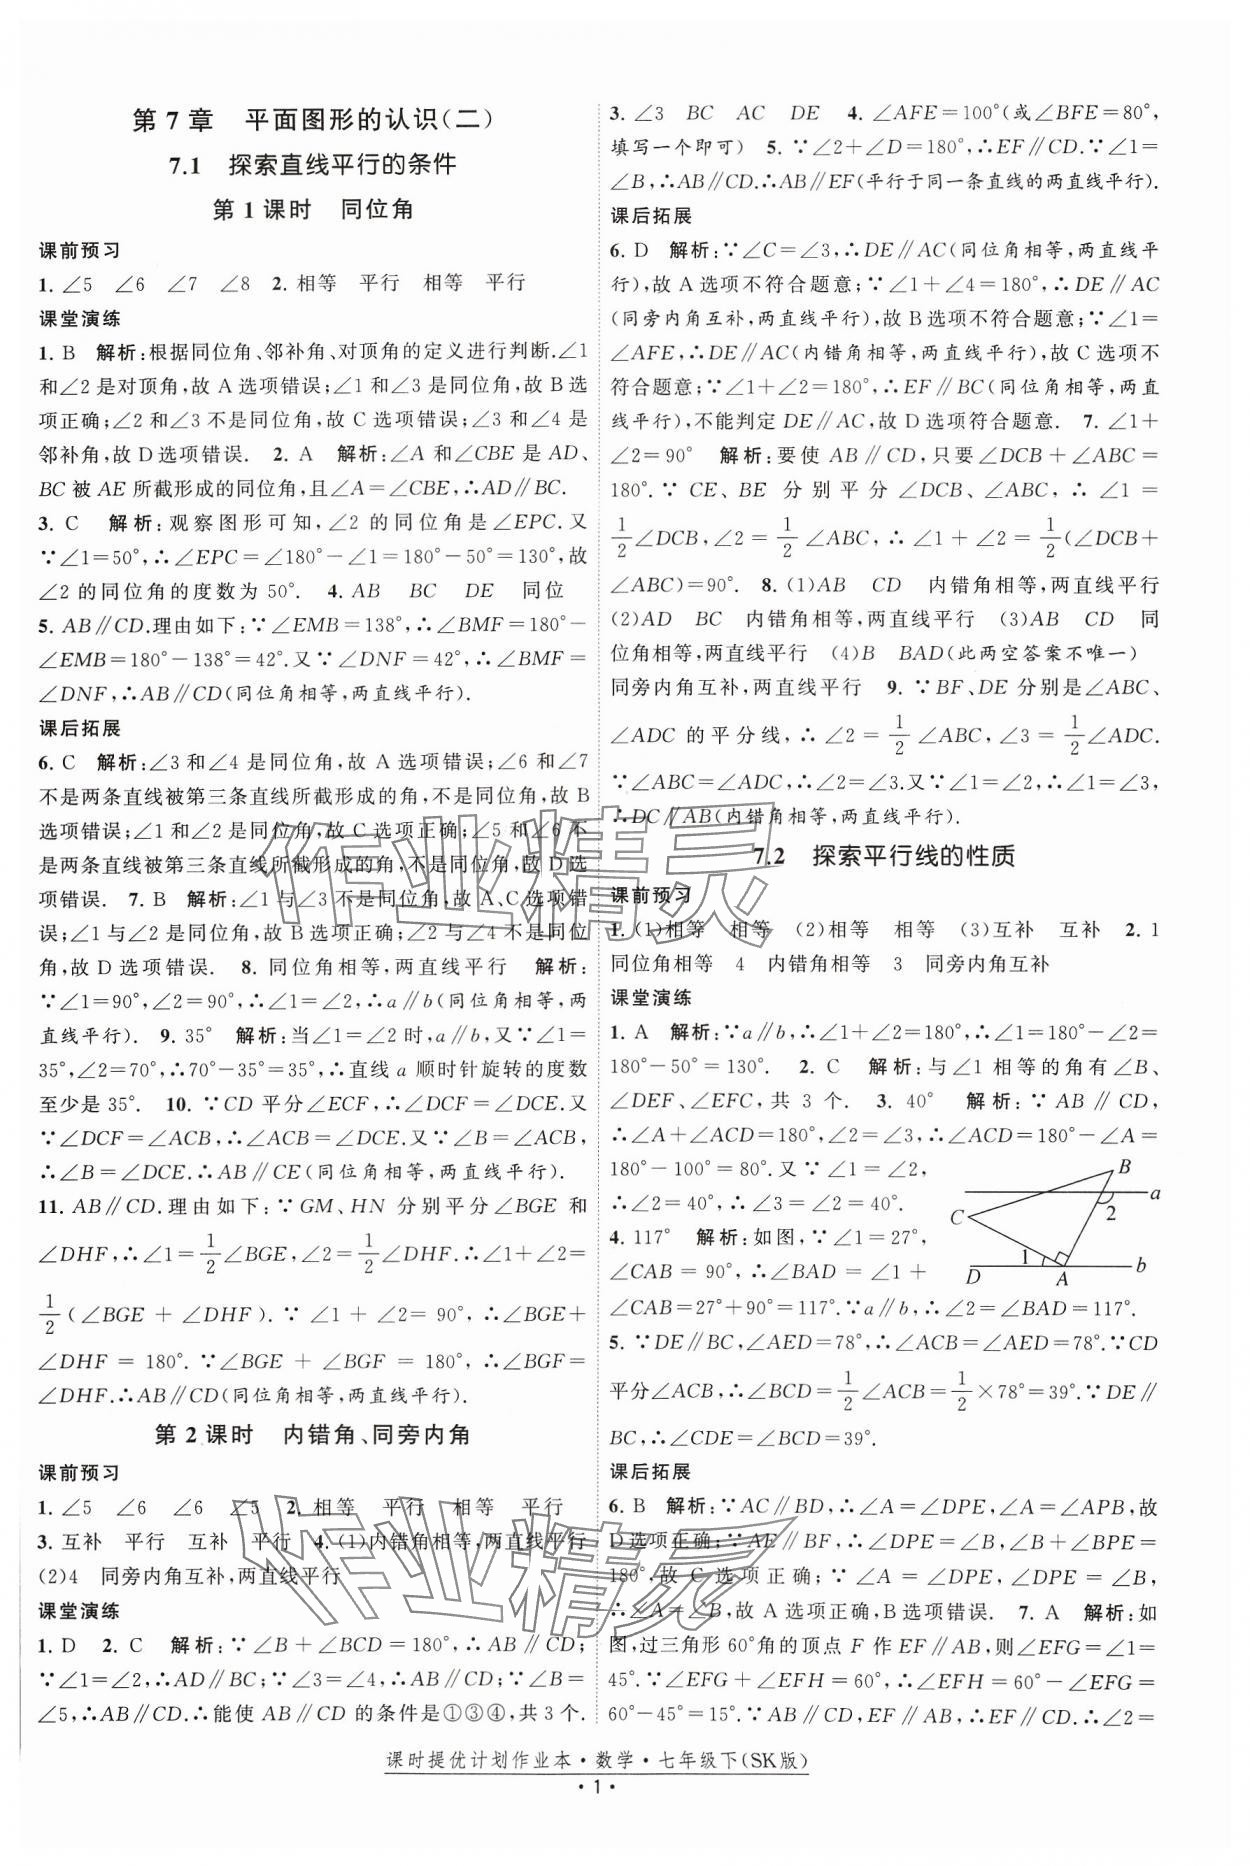 第 7 章　平面图形的认识(二)
7.1　探索直线平行的条件
第 1 课时　同位角
课前预习
1. ∠5　∠6　∠7　∠8　2. 相等　平行　相等　平行
课堂演练
1. B　解析:根据同位角、邻补角、对顶角的定义进行判断.∠1
和∠2是对顶角,故 A 选项错误;∠1 和∠3 是同位角,故 B 选
项正确;∠2 和∠3 不是同位角,故 C 选项错误;∠3 和∠4 是
邻补角,故 D 选项错误.　2. A　解析:∠A 和∠CBE 是 AD、
BC 被 AE 所截形成的同位角,且∠A=∠CBE,∴AD∥BC.
3. C　解析:观察图形可知,∠2 的同位角是∠EPC. 又
∵∠1=50°,∴∠EPC=∠180°-∠1=180°-50°=130°,故
∠2 的同位角的度数为 50°.　4. AB　BC　DE　同位
5. AB∥CD.理由如下:∵∠EMB=138°,∴∠BMF=180°-
∠EMB=180°-138°=42°.又∵∠DNF=42°,∴∠BMF=
∠DNF,∴AB∥CD(同位角相等,两直线平行).
课后拓展
6. C　解析:∠3 和∠4 是同位角,故 A 选项错误;∠6 和∠7
不是两条直线被第三条直线所截形成的角,不是同位角,故 B
选项错误;∠1 和∠2 是同位角,故 C 选项正确;∠5 和∠6 不
是两条直线被第三条直线所截形成的角,不是同位角,故 D 选
项错误.　7. B　解析:∠1与∠3 不是同位角,故 A、C 选项错
误;∠1 与∠2 是同位角,故 B 选项正确;∠2 与∠4 不是同位
角,故 D 选项错误.　8. 同位角相等,两直线平行　解析:
∵∠1=90°,∠2=90°,∴∠1=∠2,∴a∥b(同位角相等,两
直线平行).　9. 35°　解析:当∠1=∠2 时,a∥b,又∵∠1=
35°,∠2=70°,∴70°-35°=35°,∴直线 a 顺时针旋转的度数
至少是 35°.　10. ∵CD 平分∠ECF,∴∠DCF=∠DCE.又
∵∠DCF=∠ACB,∴∠ACB=∠DCE.又∵∠B=∠ACB,
∴∠B=∠DCE.∴AB∥CE(同位角相等,两直线平行).
11. AB∥CD.理由如下:∵GM、HN 分别平分∠BGE 和
∠DHF,∴∠1=1/2∠BGE,∠2=1/2∠DHF.∴∠1+∠2=
1/2(∠BGE+∠DHF).∵∠1+∠2=90°,∴∠BGE+
∠DHF=180°.∵∠BGE+∠BGF=180°,∴∠BGF=
∠DHF.∴AB∥CD(同位角相等,两直线平行).
第 2 课时　内错角、同旁内角
课前预习
1. ∠5　∠6　∠6　∠5　2. 相等　平行　相等　平行
3. 互补　平行　互补　平行　4. (1)内错角相等,两直线平行
(2)4　同旁内角互补,两直线平行
课堂演练
1. D　2. C　解析:∵∠B+∠BCD=180°,∴AB∥CD;
∵∠1=∠2,∴AD∥BC;∵∠3=∠4,∴AB∥CD;∵∠B=
∠5,∴AB∥CD.∴能使 AB∥CD 的条件是①③④,共 3 个.
3. ∠3　BC　AC　DE　4. ∠AFE=100°(或∠BFE=80°,
填写一个即可)　5. ∵∠2+∠D=180°,∴EF∥CD.∵∠1=
∠B,∴AB∥CD.∴AB∥EF(平行于同一条直线的两直线平行).
课后拓展
6. D　解析:∵∠C=∠3,∴DE∥AC(同位角相等,两直线平
行),故 A 选项不符合题意;∵∠1+∠4=180°,∴DE∥AC
(同旁内角互补,两直线平行),故 B 选项不符合题意;∵∠1=
∠AFE,∴DE∥AC(内错角相等,两直线平行),故 C 选项不
符合题意;∵∠1+∠2=180°,∴EF∥BC(同位角相等,两直
线平行),不能判定 DE∥AC,故 D 选项符合题意.　7. ∠1+
∠2=90°　解析:要使 AB∥CD,只要∠DCB+∠ABC=
180°.∵CE、BE 分别平分∠DCB、∠ABC,∴∠1=
1/2∠DCB,∠2=1/2∠ABC,∴∠1+∠2=1/2(∠DCB+
∠ABC)=90°.　8. (1)AB　CD　内错角相等,两直线平行
(2)AD　BC　内错角相等,两直线平行　(3)AB　CD　同
位角相等,两直线平行　(4)B　BAD(此两空答案不唯一)
同旁内角互补,两直线平行　9. ∵BF、DE 分别是∠ABC、
∠ADC 的平分线,∴∠2=1/2∠ABC,∠3=1/2∠ADC.
∵∠ABC=∠ADC,∴∠2=∠3.又∵∠1=∠2,∴∠1=∠3,
∴DC∥AB(内错角相等,两直线平行).
7.2　探索平行线的性质
课前预习
1. (1)相等　相等　(2)相等　相等　(3)互补　互补　2. 1
同位角相等　4　内错角相等　3　同旁内角互补
课堂演练
1. A　解析:∵a∥b,∴∠1+∠2=180°,∴∠1=180°-∠2=
180°-50°=130°.　2. C　解析:与∠1 相等的角有∠B、
∠DEF、∠EFC,共 3 个.　3. 40°　解析:∵AB∥CD,
∴∠A+∠ACD=180°,∠2=∠3,∴∠ACD=180°-∠A=
180°-100°=80°.又∵∠1=∠2,
∴∠2=40°,∴∠3=∠2=40°.
4. 117°　解析:如图,∵∠1=27°,
∠CAB=90°,∴∠BAD=∠1+
∠CAB=27°+90°=117°.∵a∥b,∴∠2=∠BAD=117°.
B
a
2
C
1
D
A
b
5. ∵DE∥BC,∠AED=78°,∴∠ACB=∠AED=78°.∵CD
平分∠ACB,∴∠BCD=1/2∠ACB=1/2×78°=39°.∵DE∥
BC,∴∠CDE=∠BCD=39°.
课后拓展
6. B　解析:∵AC∥BD,∴∠A=∠DPE,∠A=∠APB,故
D 选项正确;∵AE∥BF,∴∠DPE=∠B,∠B+∠BPE=
180°,故 C 选项正确;∵∠A=∠DPE,∠DPE=∠B,
∴∠A=∠B,故 A 选项正确,B 选项错误.　7. A　解析:如
图,过三角形 60°角的顶点 F 作 EF∥AB,则∠EFG=∠1=
45°.∵∠EFG+∠EFH=60°,∴∠EFH=60°-∠EFG=
60°-45°=15°.∵AB∥CD,EF∥AB,∴EF∥CD,∴∠2=
课时提优计划作业本·数学·七年级下(SK版)
·1·
作业精灵
作业精灵